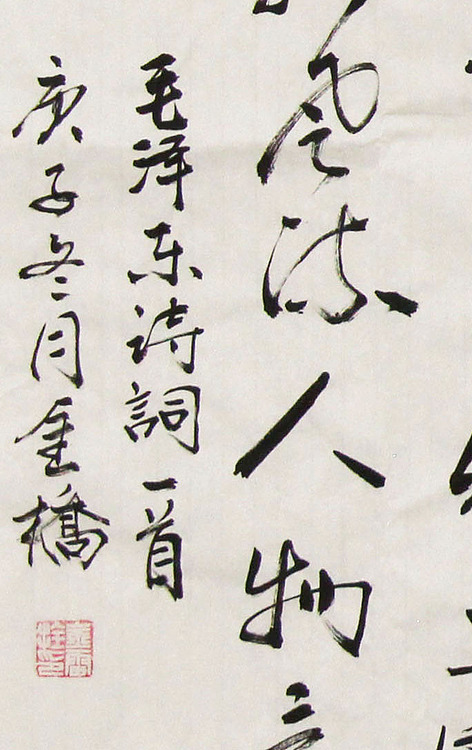 風流人物
毛泽东詩詞一首
庚子冬月金橋